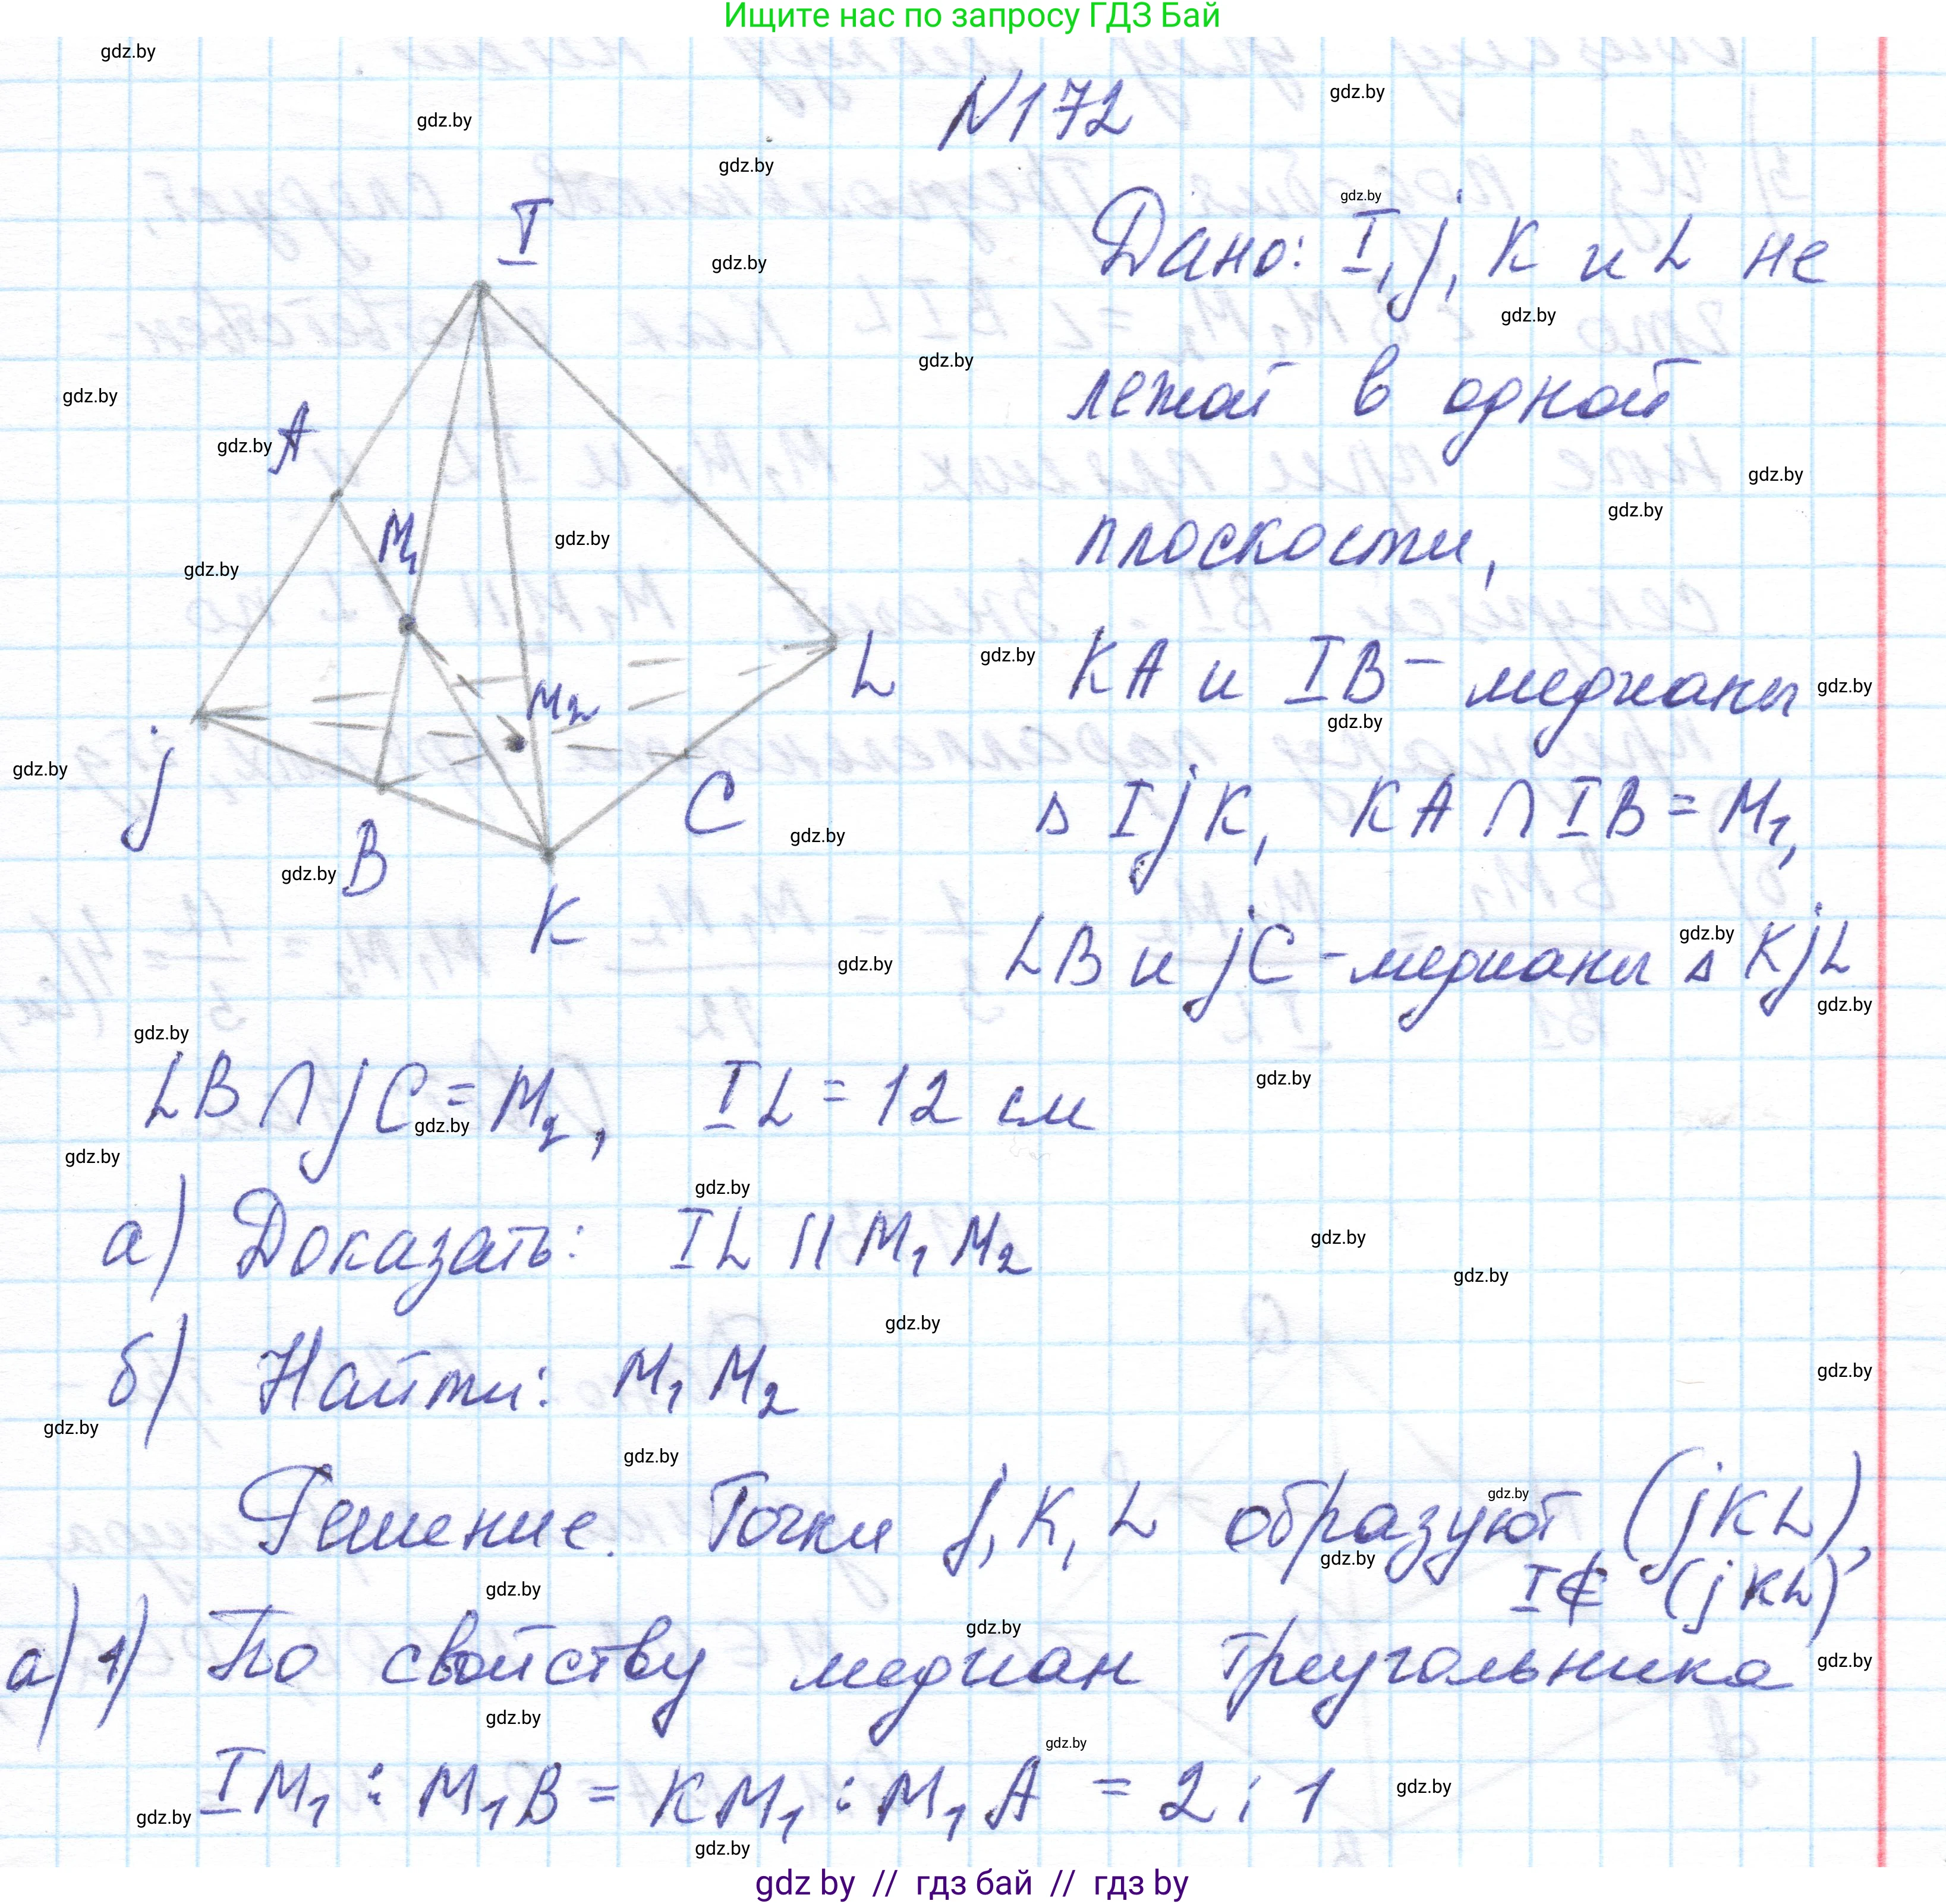 Ищите нас по запросу ГДЗ Бай
N172
Дано: I, j, K и L не
лежат в одной
плоскости,
KA и IB – медианы
△ IjK, KA ∩ IB = M₁,
LB и jC – медианы △ KjL
LB ∩ jC = M₂, IL = 12 см
а) Доказать: IL || M₁M₂
б) Найти: M₁M₂
Решение. Точки j, K, L образуют (jKL),
I ∉ (jKL)
а) 1) По свойству медиан треугольника
IM₁ : M₁B = KM₁ : M₁A = 2 : 1
I
A
M₁
M₂
L
j
B
C
K
gdz.by
gdz by // гдз бай // гдз by